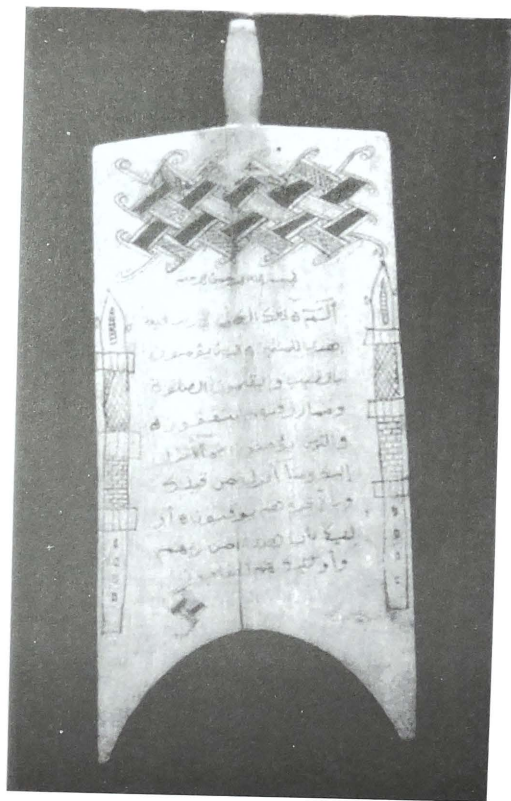 بسم الله الرحمن الرحيم
الم ذلك الكتب لا ريب فيه
هدى للمتقين الذين يؤمنون
بالغيب ويقيمون الصلوة
ومما رزقنهم ينفقون
والذين يؤمنون بما أنزل
إليك وما أنزل من قبلك
وبالأخرة هم يوقنون أو
لئك على هدى من ربهم
وأولئك هم المفلحون